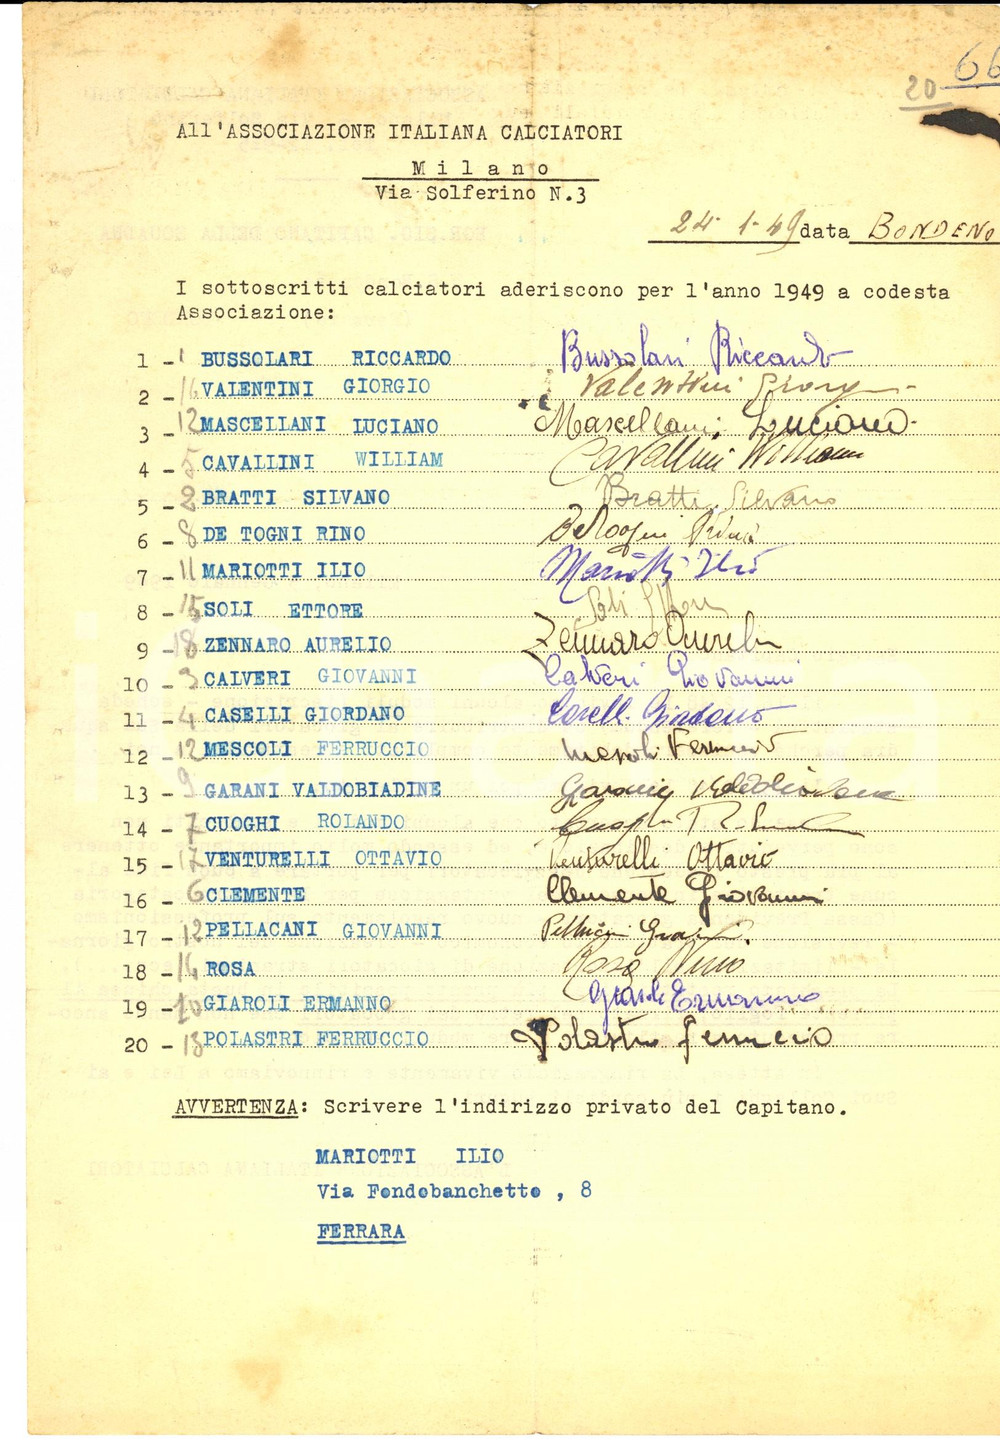 66
20
All'ASSOCIAZIONE ITALIANA CALCIATORI
Milano
Via Solferino N.3
24-1-49 data BONDENO
I sottoscritti calciatori aderiscono per l'anno 1949 a codesta
Associazione:
1 - 1 BUSSOLARI RICCARDO Bussolari Riccardo
2 - 16 VALENTINI GIORGIO Valentini Giorgio
3 - 12 MASCELLANI LUCIANO Mascellani Luciano
4 - 5 CAVALLINI WILLIAM Cavallini William
5 - 2 BRATTI SILVANO Bratti Silvano
6 - 8 DE TOGNI RINO
7 - 11 MARIOTTI ILIO Mariotti Ilio
8 - 15 SOLI ETTORE Soli Ettore
9 - 18 ZENNARO AURELIO Zennaro Aurelio
10 - 3 CALVERI GIOVANNI Calveri Giovanni
11 - 4 CASELLI GIORDANO Caselli Giordano
12 - 12 MESCOLI FERRUCCIO Mescoli Ferruccio
13 - 9 GARANI VALDOBIADINE Garani
14 - 7 CUOGHI ROLANDO Cuoghi
15 - 17 VENTURELLI OTTAVIO Venturelli Ottavio
16 - 6 CLEMENTE Clemente Giovanni
17 - 12 PELLACANI GIOVANNI
18 - 14 ROSA Rosa Nino
19 - 10 GIAROLI ERMANNO Giaroli Ermanno
20 - 13 POLASTRI FERRUCCIO Polastri Ferruccio
AVVERTENZA: Scrivere l'indirizzo privato del Capitano.
MARIOTTI ILIO
Via Fondobanchetto , 8
FERRARA